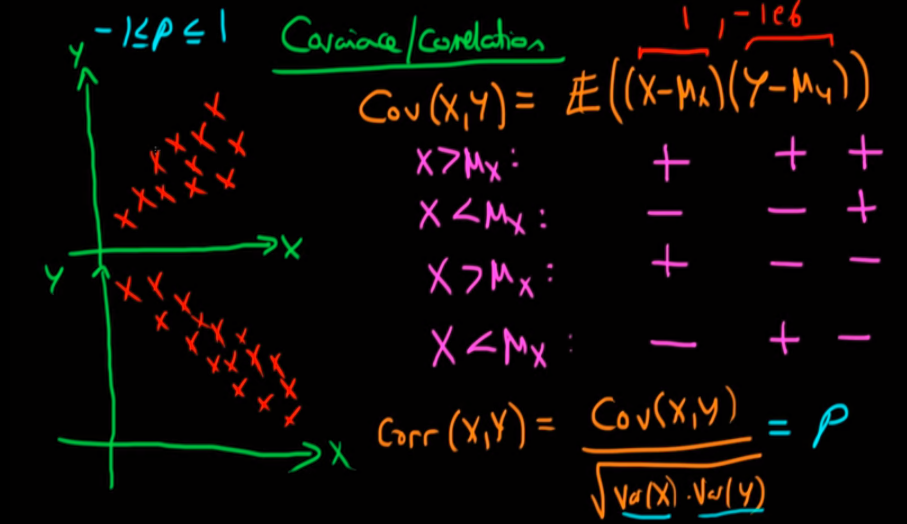 -1≤ρ≤1
Covariance/Correlation
1, -1e6
Y
Cov(X,Y) = E((X-μx)(Y-μy))
X>μx: + + +
X<μx: - - +
X
Y
X>μx: + - -
X<μx: - + -
Corr(X,Y) = Cov(X,Y) / √Var(X)·Var(Y) = ρ
X